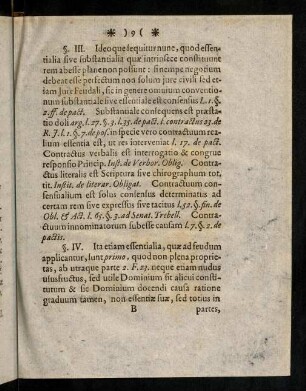 * )9( *
§. III. Ideoque sequitur nunc, quod essen-
tialia sive substantialia quæ intrinsece constituunt
rem abesse plane non possunt: sine imperfectum negotium
debeat esse perfectum non solum jure civili sed et-
iam Jure Feudali, sic in genere omnium conventio-
num substantiale sive essentiale est consensus l. 1. §.
2. ff. de pact. Substantiale consequens est præsta-
tio doli arg. l. 27. §. 3. l. 35. de pact. & contractus 23. de
R. J. l. 1. §. 7. depos. in specie vero contractuum rea-
lium essentia est, ut res interveniat l. 17. de pact.
Contractus verbalis est interrogatio & congrue
responsio Princip. Inst. de Verbor. Oblig. Contra-
ctus literalis est Scriptura sive chirographum tot.
tit. Instit. de literar. Obligat. Contractuum con-
sensualium est solus consensus determinatus ad
certam rem sive expressus sive tacitus l. 52. §. fin. de
Obl. & Act. l. 65. §. 3. ad Senat. Trebell. Contra-
ctuum innominatorum subesse causam l. 7. §. 2. de
pactis.
§. IV. Ita etiam essentialia, quæ ad feudum
applicantur, sunt primo, quod non plena proprie-
tas, ab utraque parte 2. F. 23. neque etiam nudus
ususfructus, sed utile Dominium sit alicui consti-
tutum & sic Dominium docendi causa ratione
graduum tamen, non essentiæ suæ, sed totius in
B partes,